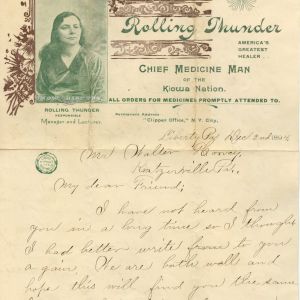 Rolling Thunder
AMERICA'S
GREATEST
HEALER
CHIEF MEDICINE MAN
OF THE
Kiowa Nation.
ALL ORDERS FOR MEDICINES PROMPTLY ATTENDED TO.
ROLLING THUNDER
RESPONSIBLE
Manager and Lecturer.
Permanent Address
"Clipper Office," N. Y. City.
Liberty Pa Dec 2nd
Mr Walter
Pa.
My dear Friend;
I have not heard from
you in a long time so I thought
I had better write to you
again. We are both well and
hope this will find you the same